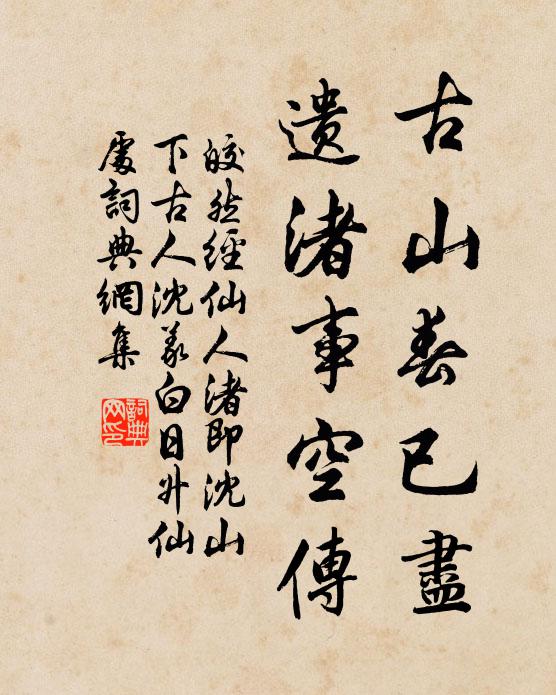 古山春已盡
遺渚事空傳
皎然經仙人渚即沈山
下古人沈羲白日升仙
處詞典網集
詞典
网印